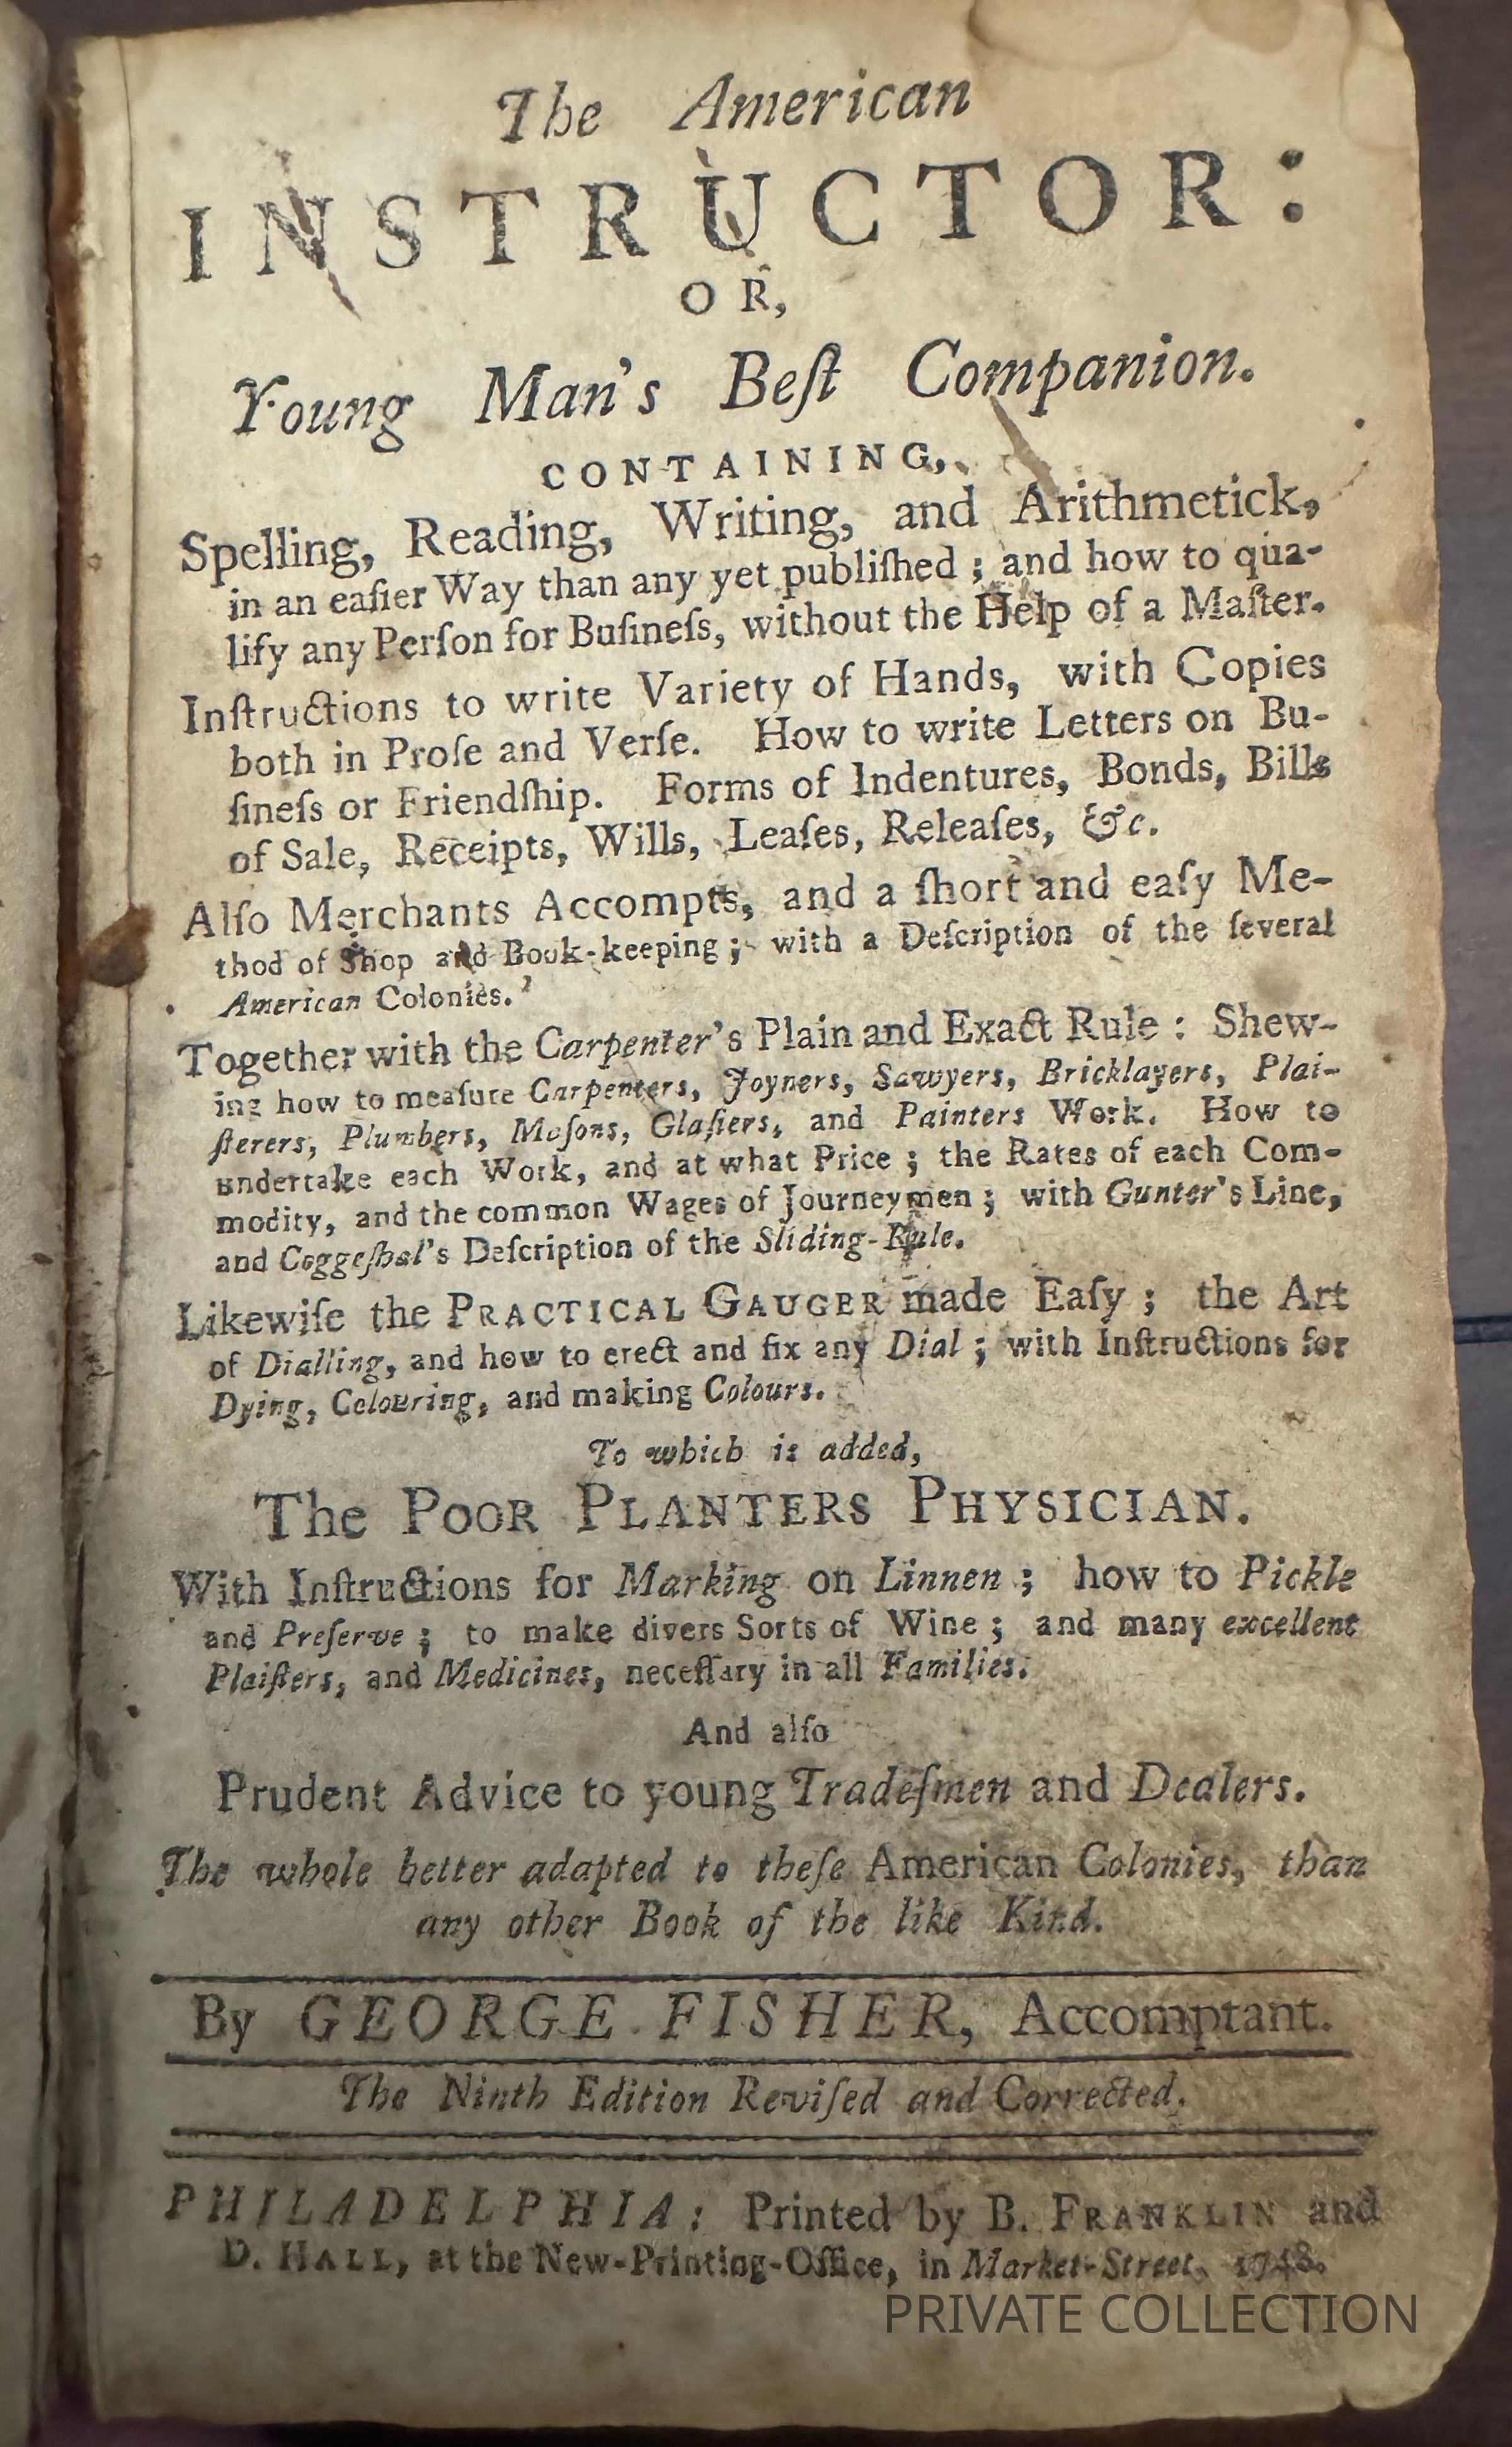 The American
INSTRUCTOR:
OR,
Young Man's Beſt Companion.
CONTAINING,
Spelling, Reading, Writing, and Arithmetick,
in an eaſier Way than any yet publiſhed ; and how to qua-
lify any Perſon for Buſineſs, without the Help of a Maſter.
Inſtructions to write Variety of Hands, with Copies
both in Proſe and Verſe. How to write Letters on Bu-
ſineſs or Friendſhip. Forms of Indentures, Bonds, Bills
of Sale, Receipts, Wills, Leaſes, Releaſes, &c.
Alſo Merchants Accompts, and a ſhort and eaſy Me-
thod of Shop and Book-keeping ; with a Deſcription of the ſeveral
American Colonies.
Together with the Carpenter's Plain and Exact Rule : Shew-
ing how to meaſure Carpenters, Joyners, Sawyers, Bricklayers, Plai-
ſterers, Plumbers, Maſons, Glaſiers, and Painters Work. How to
undertake each Work, and at what Price ; the Rates of each Com-
modity, and the common Wages of Journeymen ; with Gunter's Line,
and Coggeſhal's Deſcription of the Sliding-Rule.
Likewiſe the PRACTICAL GAUGER made Eaſy ; the Art
of Dialling, and how to erect and fix any Dial ; with Inſtructions for
Dying, Colouring, and making Colours.
To which is added,
The POOR PLANTERS PHYSICIAN.
With Inſtructions for Marking on Linnen ; how to Pickle
and Preſerve ; to make divers Sorts of Wine ; and many excellent
Plaiſters, and Medicines, neceſſary in all Families.
And alſo
Prudent Advice to young Tradeſmen and Dealers.
The whole better adapted to theſe American Colonies, than
any other Book of the like Kind.
By GEORGE FISHER, Accomptant.
The Ninth Edition Reviſed and Corrected.
PHILADELPHIA: Printed by B. FRANKLIN and
D. HALL, at the New-Printing-Office, in Market-Street, 1748.
PRIVATE COLLECTION